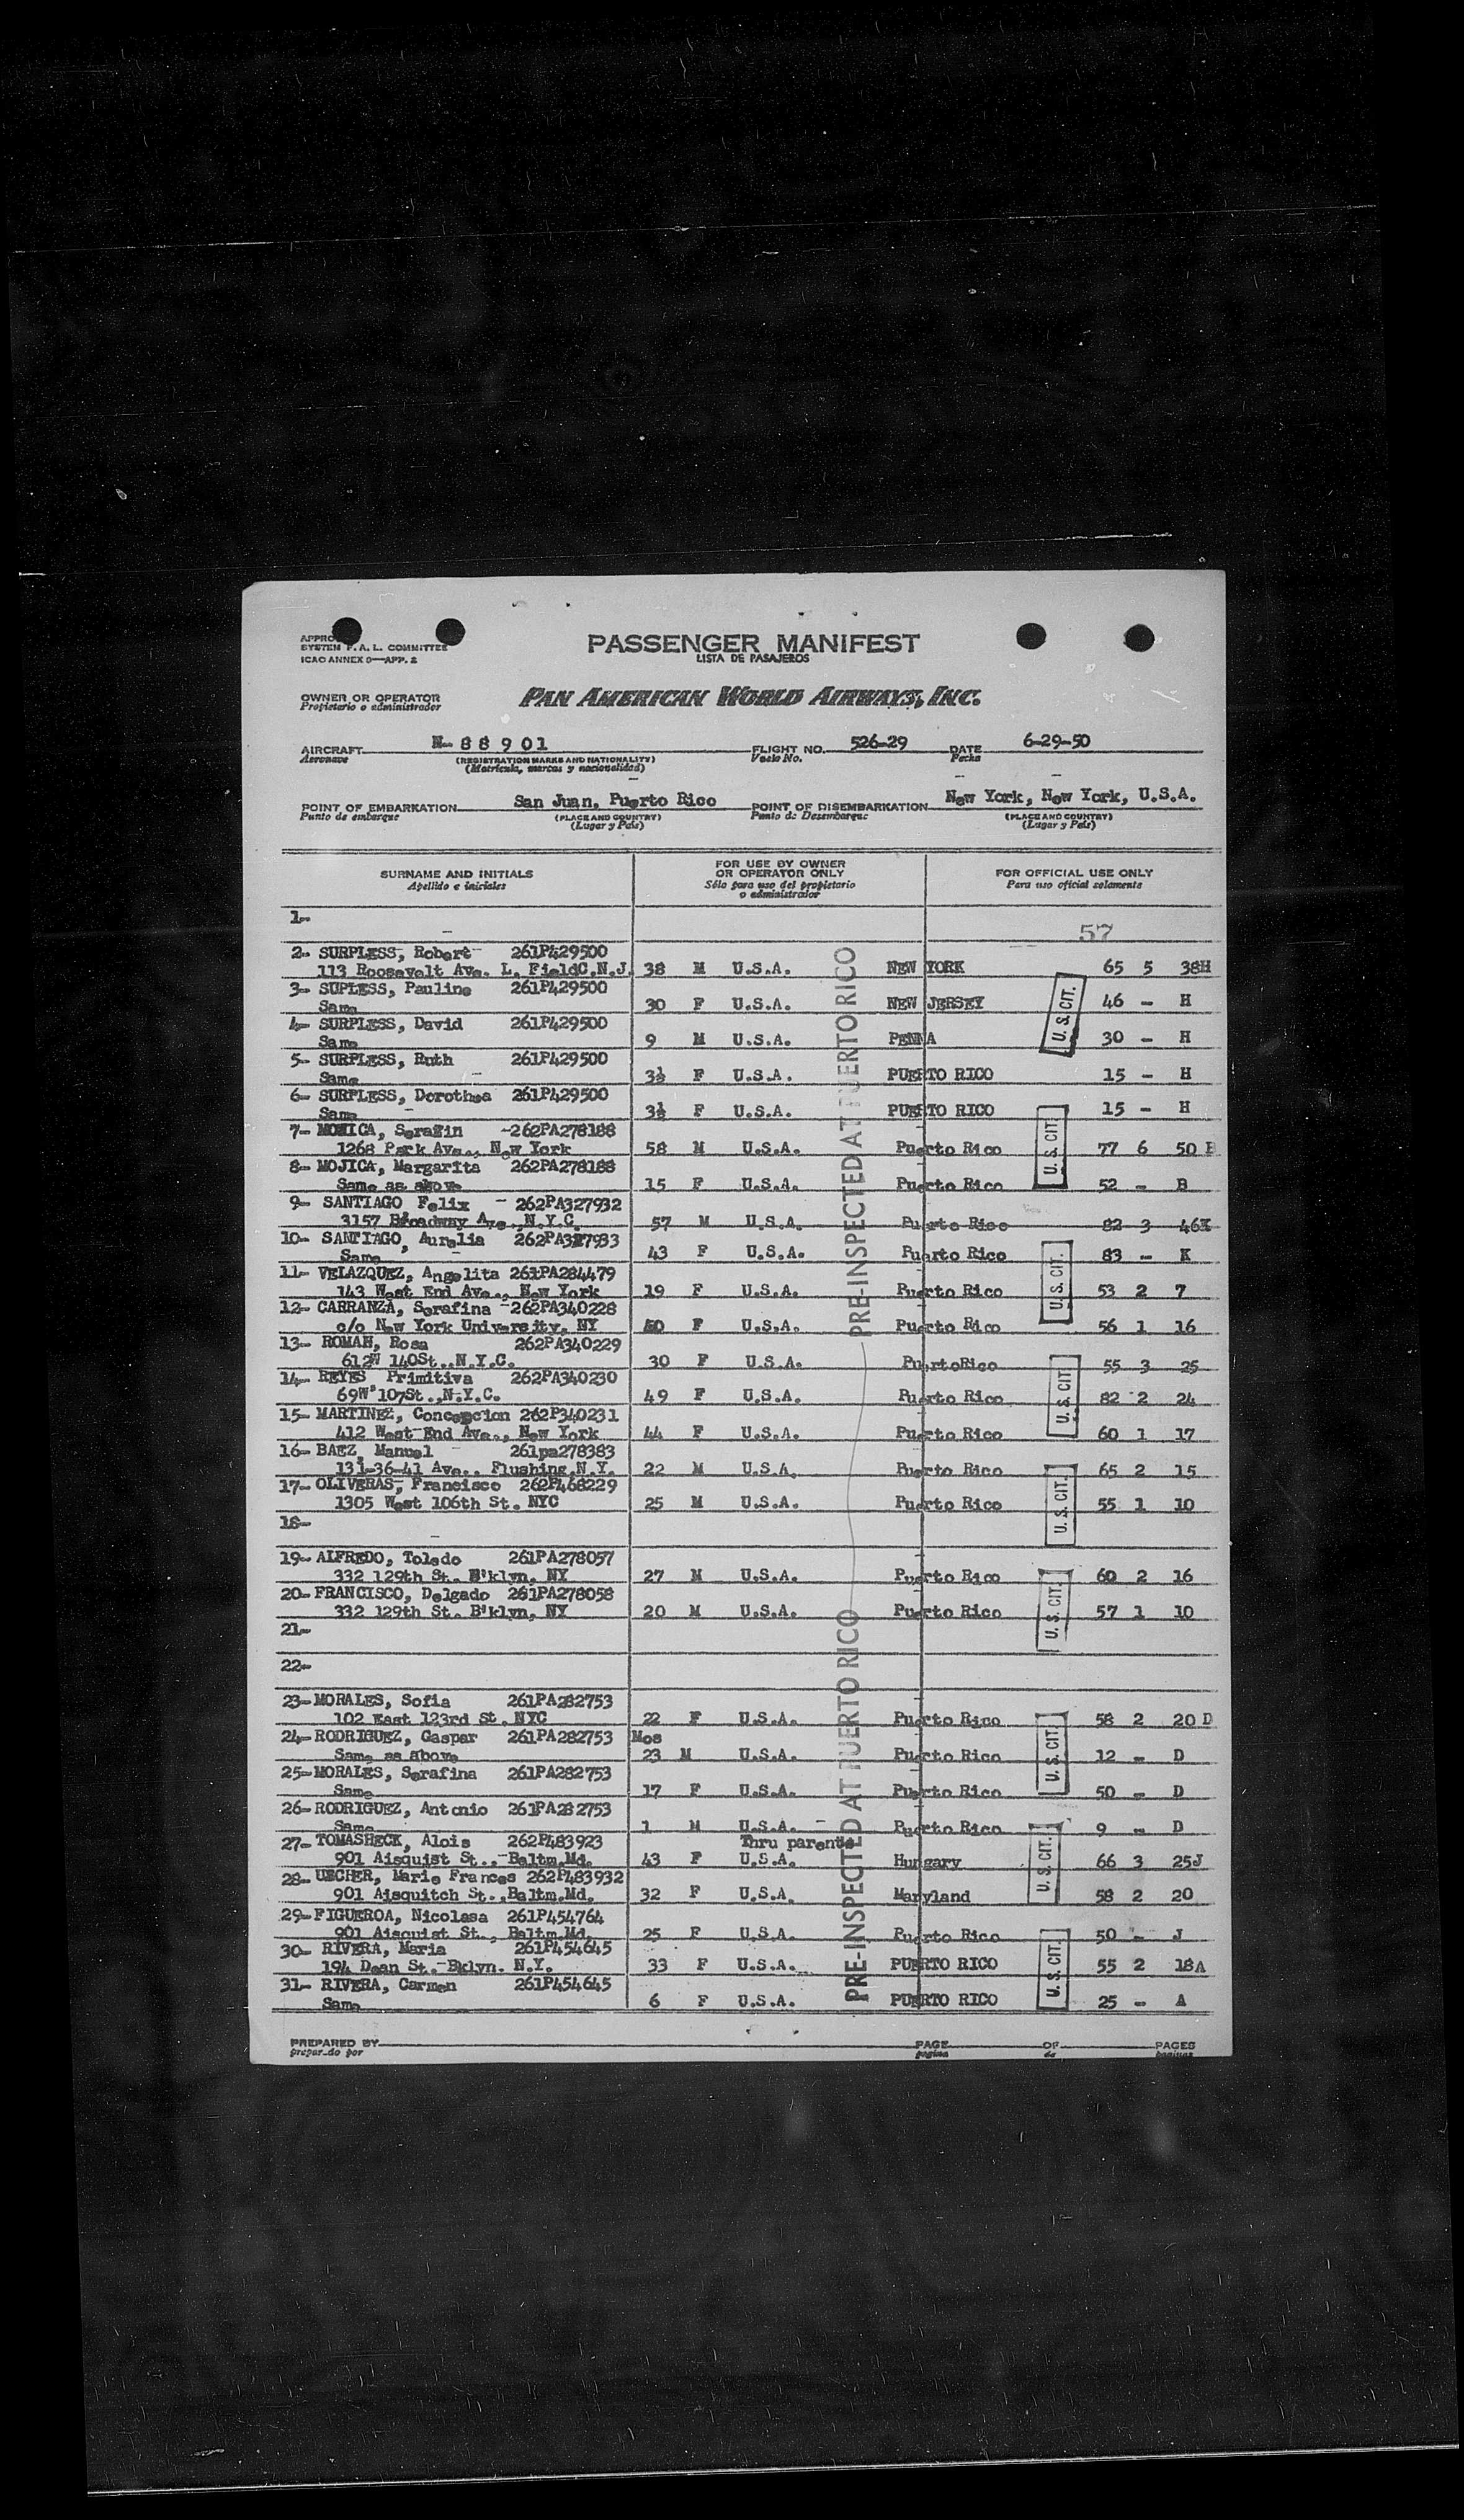 SYSTEM F. A. L. COMMITTEE
ICAO ANNEX 9—APP. 2
PASSENGER MANIFEST
LISTA DE PASAJEROS
OWNER OR OPERATOR
Propietario o administrador
PAN AMERICAN WORLD AIRWAYS, INC.
AIRCRAFT N- 8 8 9 0 1 FLIGHT NO. 526-29 DATE 6-29-50
Aeronave (REGISTRATION MARKS AND NATIONALITY) Vuelo No. Fecha
(Matrícula, marcas y nacionalidad)
POINT OF EMBARKATION San Juan, Puerto Rico POINT OF DISEMBARKATION New York, New York, U.S.A.
Punto de embarque (PLACE AND COUNTRY) Punto de Desembarque (PLACE AND COUNTRY)
(Lugar y País) (Lugar y País)
SURNAME AND INITIALS FOR USE BY OWNER OR OPERATOR ONLY FOR OFFICIAL USE ONLY
Apellido e iniciales Sólo para uso del propietario o administrador Para uso oficial solamente
1-
57
2- SURPLESS, Robert 261P429500
113 Roosevelt Ave. L. FieldC.N.J. 38 M U.S.A. NEW YORK 65 5 38H
3- SUPLESS, Pauline 261P429500
Same 30 F U.S.A. NEW JERSEY 46 - H
4- SURPLESS, David 261P429500
Same 9 M U.S.A. PENNA 30 - H
5- SURPLESS, Ruth 261P429500
Same 3½ F U.S.A. PUERTO RICO 15 - H
6- SURPLESS, Dorothea 261P429500
Same 3½ F U.S.A. PUERTO RICO 15 - H
7- MOJICA, Serafin -262PA278188
1268 Park Ave., New York 58 M U.S.A. Puerto Rico 77 6 50 B
8- MOJICA, Margarita 262PA278188
Same as above 15 F U.S.A. Puerto Rico 52 - B
9- SANTIAGO Felix - 262PA327932
3157 Broadway Ave., N.Y.C. 57 M U.S.A. Puerto Rico 82 3 46K
10- SANTIAGO, Aurelia 262PA327933
Same 43 F U.S.A. Puerto Rico 83 - K
11- VELAZQUEZ, Angelita 261PA284479
143 West End Ave., New York 19 F U.S.A. Puerto Rico 53 2 7
12- CARRANZA, Serafina -262PA340228
c/o New York University, NY 50 F U.S.A. Puerto Rico 56 1 16
13- ROMAN, Rosa 262PA340229
612W 140St., N.Y.C. 30 F U.S.A. PuertoRico 55 3 25
14- REYES Primitiva 262PA340230
69W 107St., N.Y.C. 49 F U.S.A. Puerto Rico 82 2 24
15- MARTINEZ, Concepcion 262P340231
412 West End Ave., New York 44 F U.S.A. Puerto Rico 60 1 17
16- BAEZ, Manuel 261pa278383
131-36-41 Ave., Flushing, N.Y. 22 M U.S.A. Puerto Rico 65 2 15
17- OLIVERAS, Francisco 262P468229
1305 West 106th St. NYC 25 M U.S.A. Puerto Rico 55 1 10
18-
19- ALFREDO, Toledo 261PA278057
332 129th St. B'klyn, NY 27 M U.S.A. Puerto Rico 60 2 16
20- FRANCISCO, Delgado 261PA278058
332 129th St. B'klyn, NY 20 M U.S.A. Puerto Rico 57 1 10
21-
22-
23- MORALES, Sofia 261PA282753
102 East 123rd St. NYC 22 F U.S.A. Puerto Rico 58 2 20 D
24- RODRIGUEZ, Gaspar 261PA282753 Mos
Same as above 23 M U.S.A. Puerto Rico 12 - D
25- MORALES, Serafina 261PA282753
Same 17 F U.S.A. Puerto Rico 50 - D
26- RODRIGUEZ, Antonio 261PA282753
Same 1 M U.S.A. - Puerto Rico 9 - D
27- TOMASHECK, Alois 262P483923 Thru parents
901 Aisquist St., Baltm.Md. 43 F U.S.A. Hungary 66 3 25J
28- UECHER, Marie Frances 262P483932
901 Aisquitch St., Baltm.Md. 32 F U.S.A. Maryland 58 2 20
29- FIGUEROA, Nicolasa 261P454764
901 Aisquist St., Baltm.Md. 25 F U.S.A. Puerto Rico 50 - J
30- RIVERA, Maria 261P454645
194 Dean St.-Bklyn. N.Y. 33 F U.S.A. PUERTO RICO 55 2 18A
31- RIVERA, Carmen 261P454645
Same 6 F U.S.A. PUERTO RICO 25 - A
PRE-INSPECTED AT PUERTO RICO
PRE-INSPECTED AT PUERTO RICO
U. S. CIT.
U. S. CIT.
U. S. CIT.
U. S. CIT.
U. S. CIT.
U. S. CIT.
U. S. CIT.
U. S. CIT.
U. S. CIT.
PREPARED BY PAGE OF PAGES
preparado por pagina de paginas